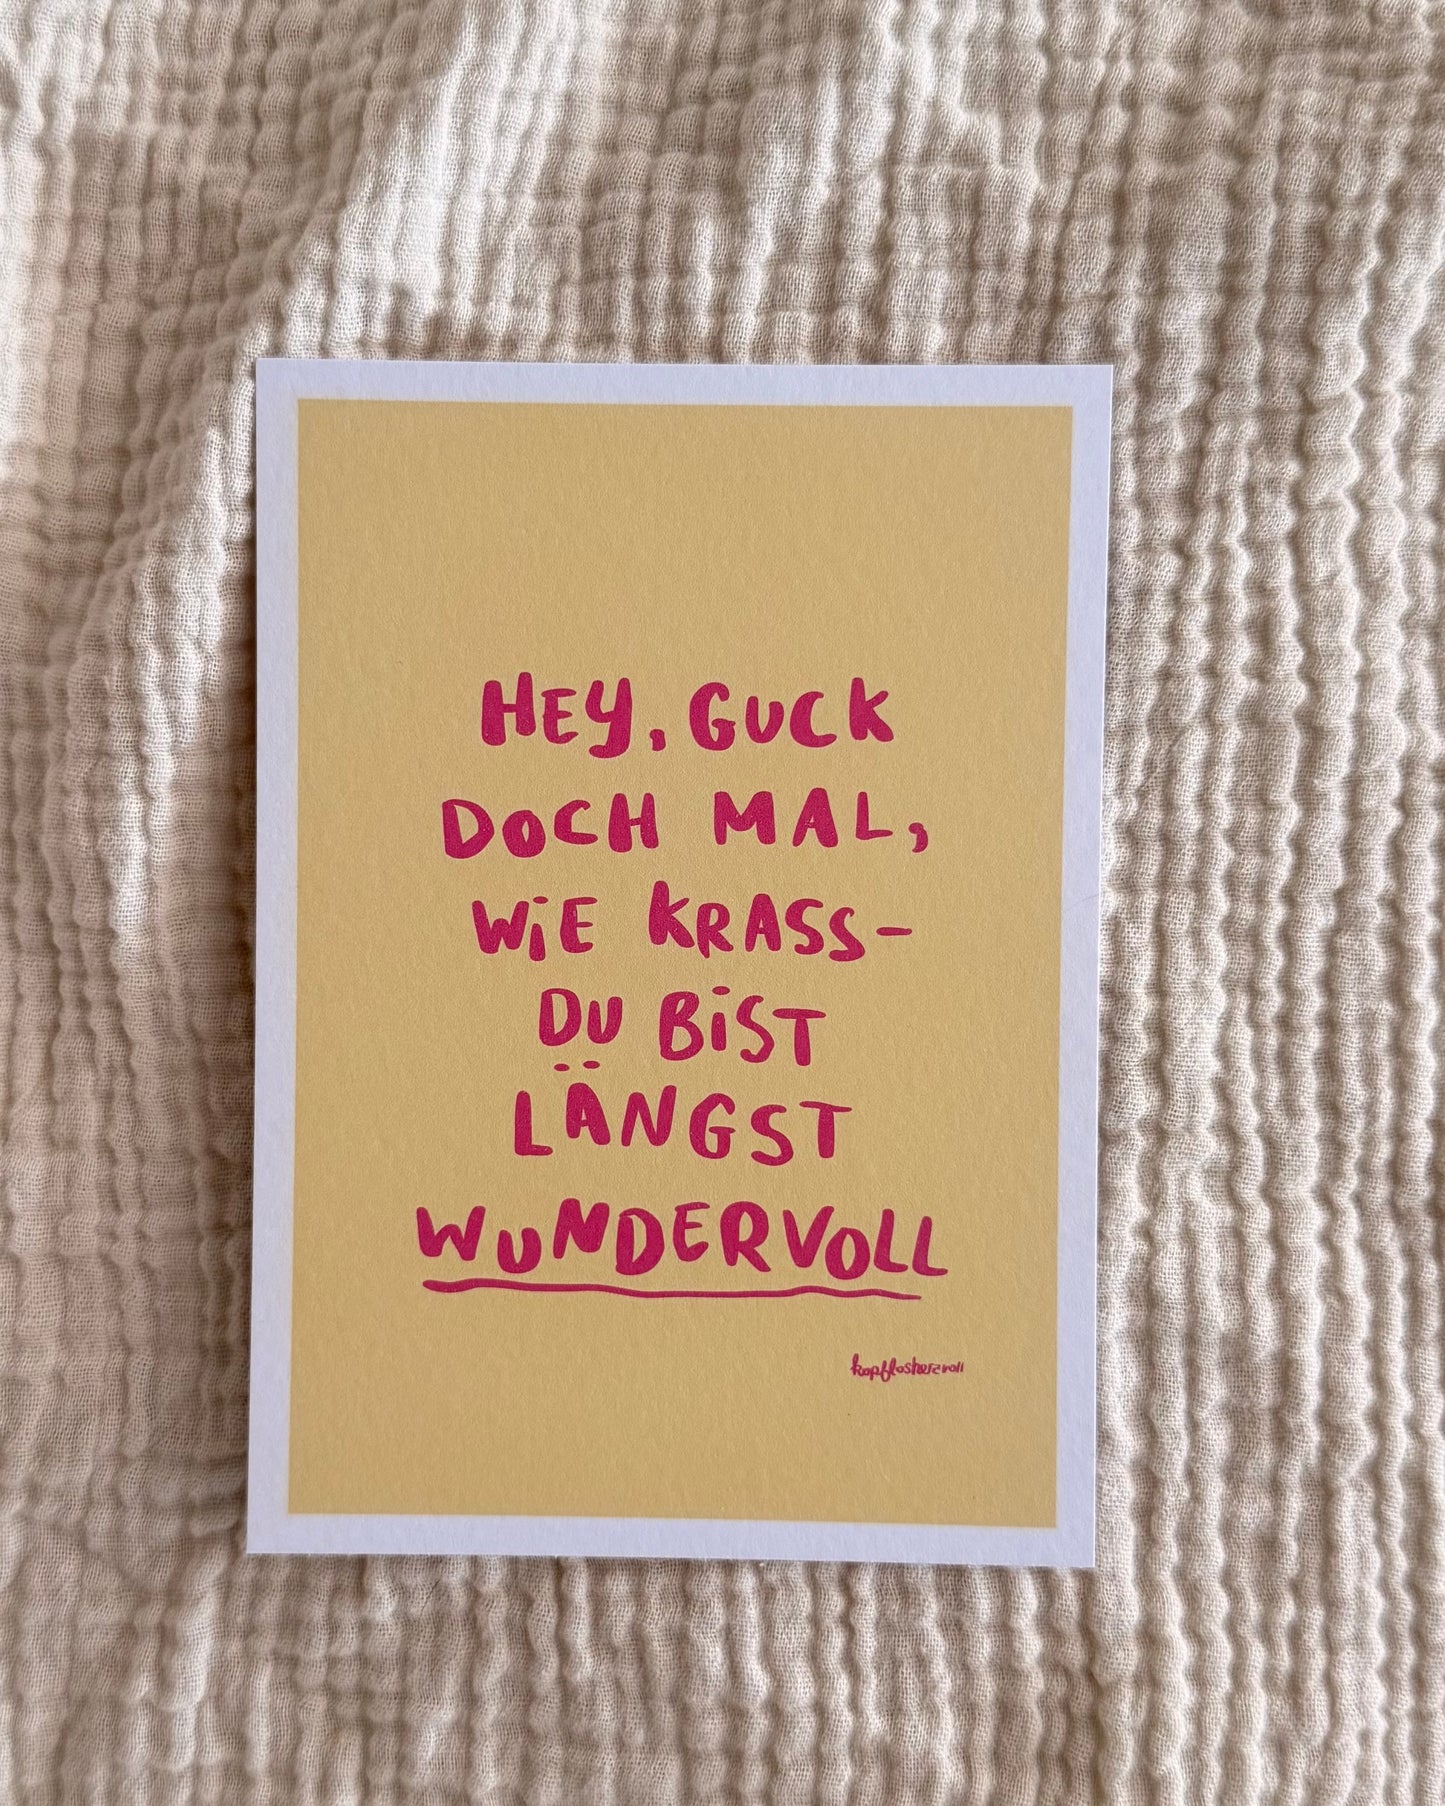 HEY, GUCK
DOCH MAL,
WiE KRASS-
DU BiST
LÄNGST
WUNDERVOLL
kopflosherzvoll